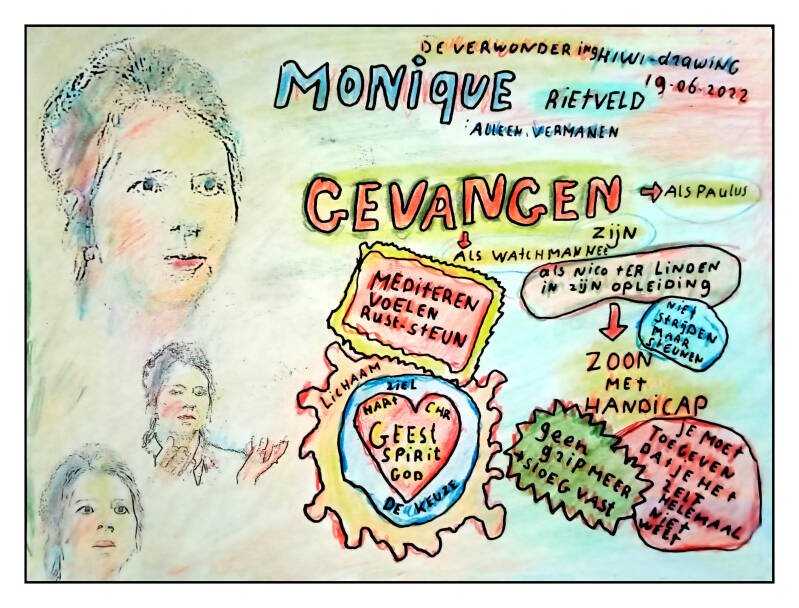 DE VERWONDERing HIWI-drawing
19-06-2022
MONiQUE RiETVELD
'ALLEEN. VERMANEN
GEVANGEN
ALS PAULUS
ZIJN
ALS WATCHMAN NEE
als NICO tER LINDEN
IN ZIJN OPLEIDING
MEDITEREN
VOELEN
RUST-STEUN
NIET
STRIJDEN
MAAR
STEUNEN
ZOON
MET
HANDICAP
LICHAAM
ZIEL
HART CHR
GEEST
SPIRIT
GOD
DE KEUZE
geen
grip MEER
+ SLOEG VAST
JE MOET
TOEGEVEN
DAT JE HET
ZELF
HELEMAAL
NIET
WEET